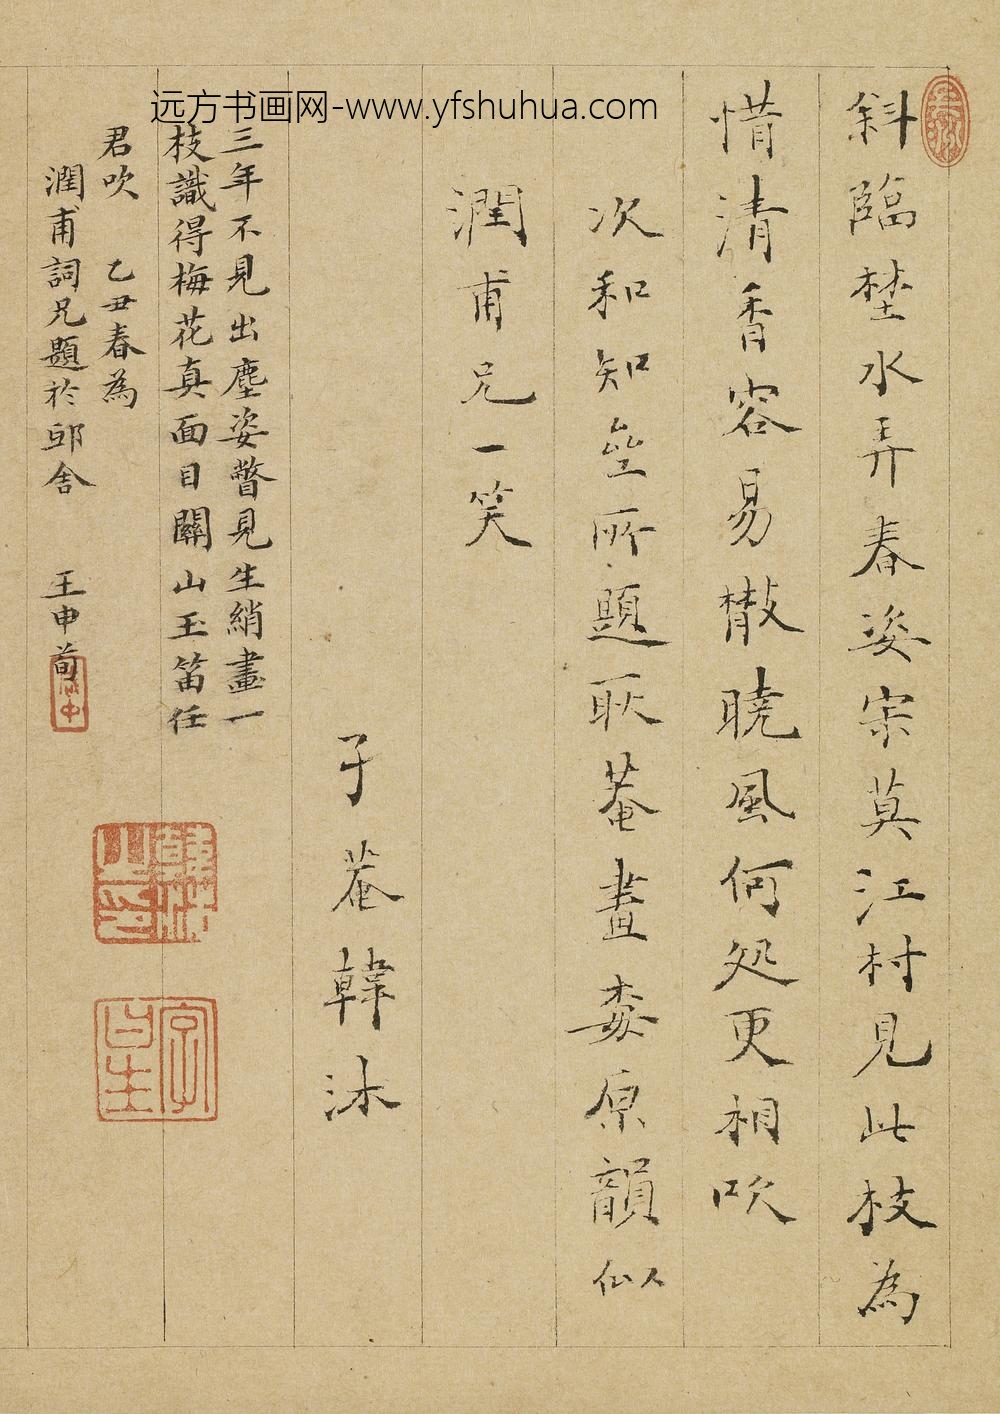 远方书画网-www.yfshuhua.com
斜臨埜水弄春姿寂莫江村見此枝為
惜清香容易散曉風何処更相吹
次和知㘴所題耿菴畫委原韻似
潤甫兄一笑
子菴韓沐
三年不見出塵姿瞥見生綃畫一
枝識得梅花真面目關山玉笛任
君吹 乙丑春為
潤甫詞兄題於邸舍 王申荀